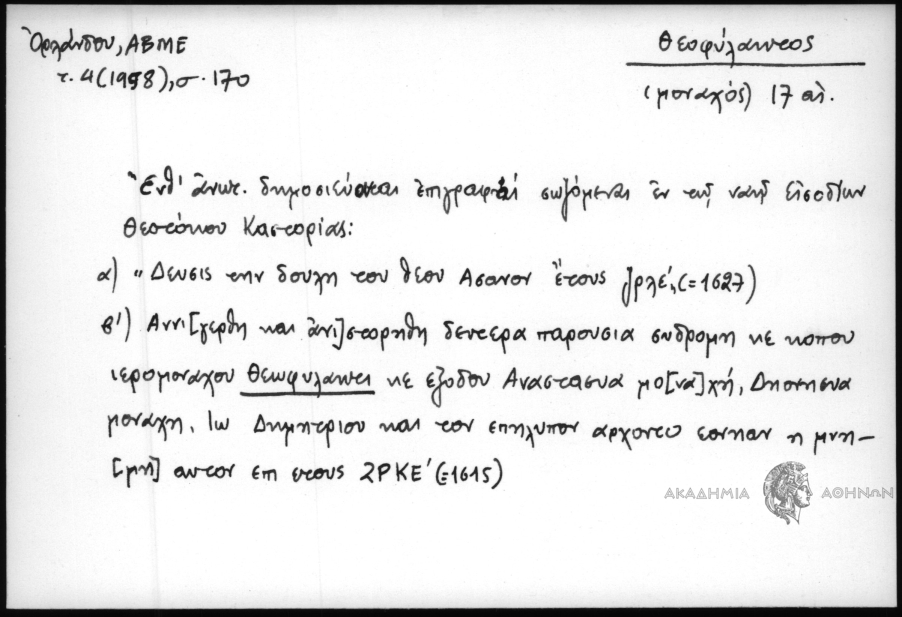 Ὀρλάνδου, ΑΒΜΕ
τ. 4 (1938), σ. 170
Θεοφύλακτος
(μοναχός) 17 αἰ.
Ἔνθ' ἄνωτ. δημοσιεύονται ἐπιγραφαί σωζόμεναι ἐν τῷ ναῷ Εἰσοδίων
Θεοτόκου Καστορίας:
α) " Δευσις την δουλη του θεου Ασανον Ἔτους ͵ζρλέ,, (=1627)
β') Ανη[γερθη και ἀνι]στορηθη δευτερα παρουσια συνδρομη κε κοπου
ιερομοναχου Θεωφυλακτι κε εξοδου Αναστασυα μο[να]χή,
μοναχη, Ιω Δημητριου και τον επηλυπον αρχοντω εονηαν η μνη-
[μη] αυτον επι ετους ΖΡΚΕ' (=1615)
ΑΚΑΔΗΜΙΑ ΑΘΗΝΩΝ